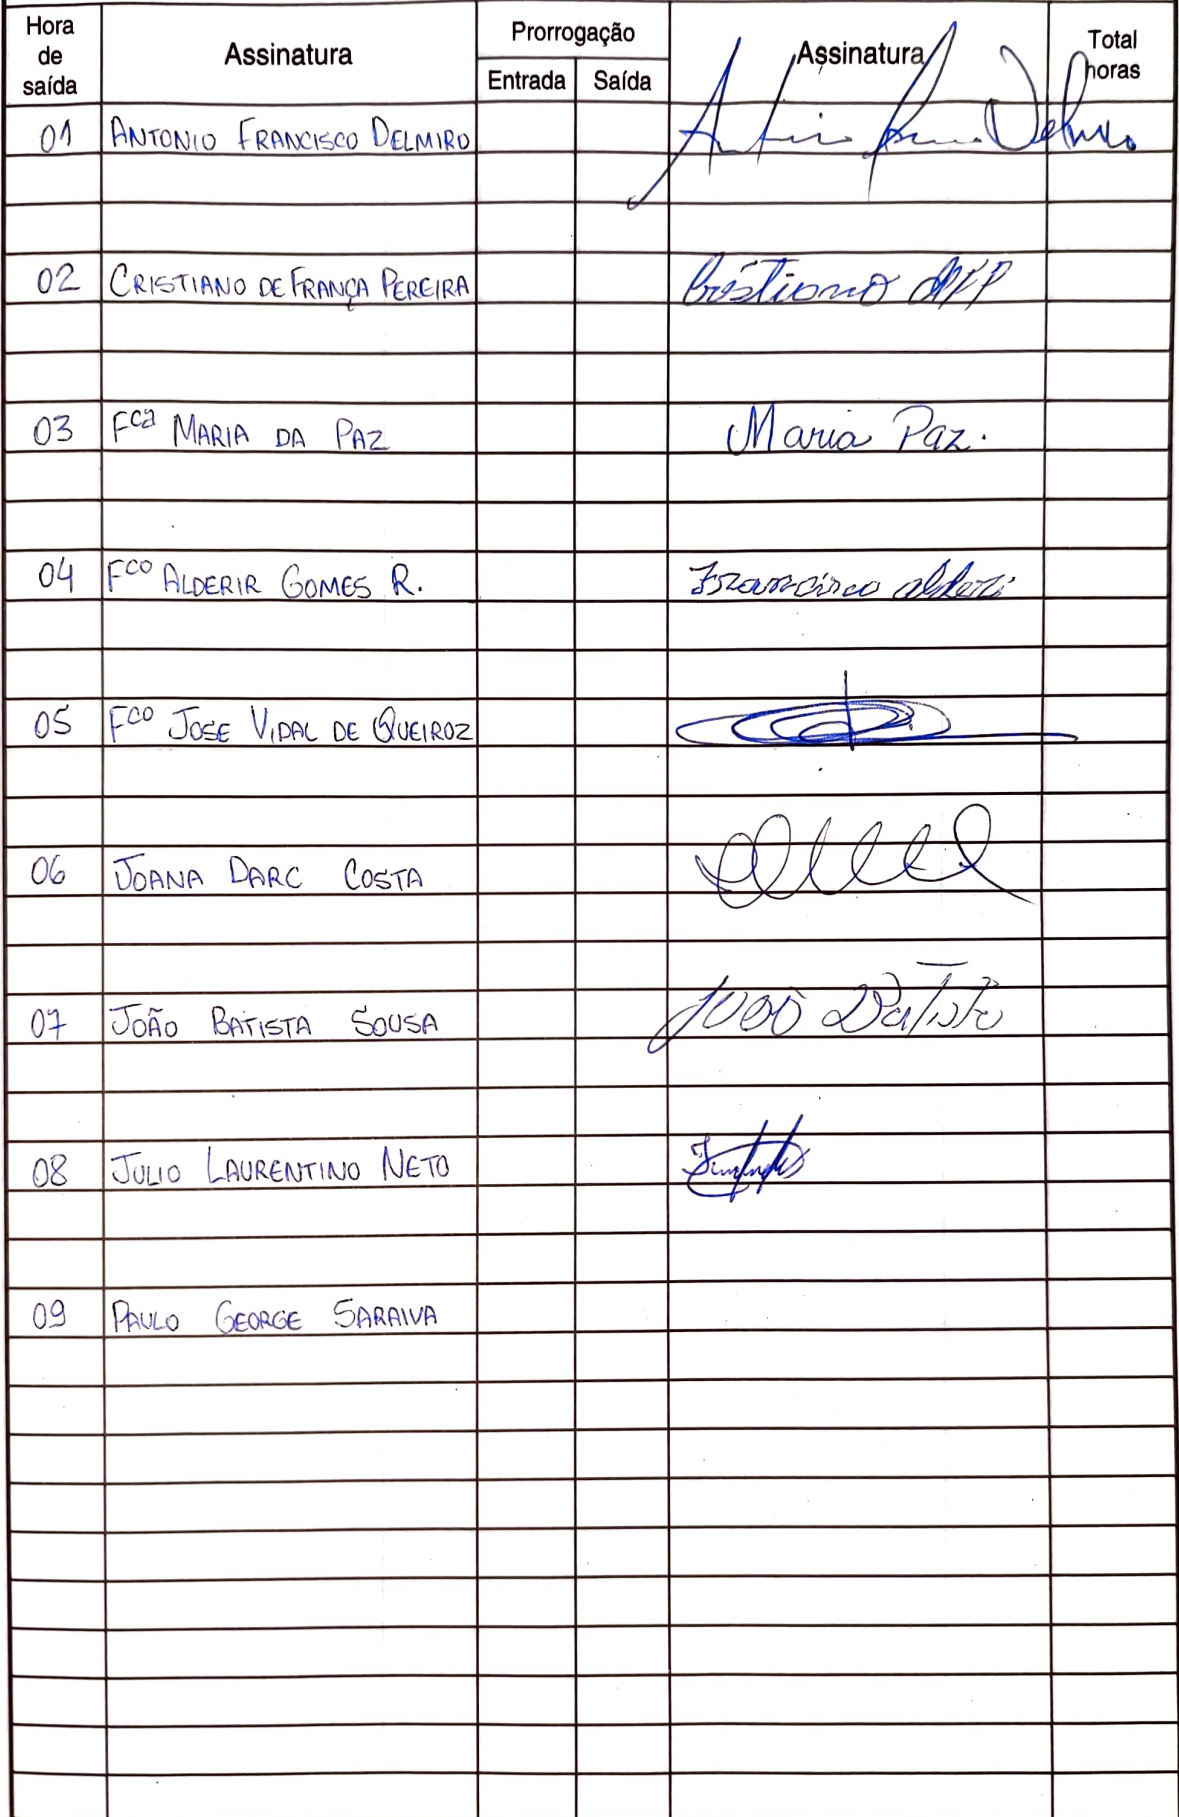 Hora de saída Assinatura Prorrogação Assinatura Total horas
Entrada Saída
01 ANTONIO FRANCISCO DELMIRO
02 CRISTIANO DE FRANÇA PEREIRA Cristiano
03 Fca MARIA DA PAZ Maria Paz.
04 Fco ALDERIR GOMES R. Francisco alderi
05 Fco JOSE VIDAL DE QUEIROZ
06 JOANA DARC COSTA
07 JOÃO BATISTA SOUSA João Batista
08 JULIO LAURENTINO NETO
09 PAULO GEORGE SARAIVA